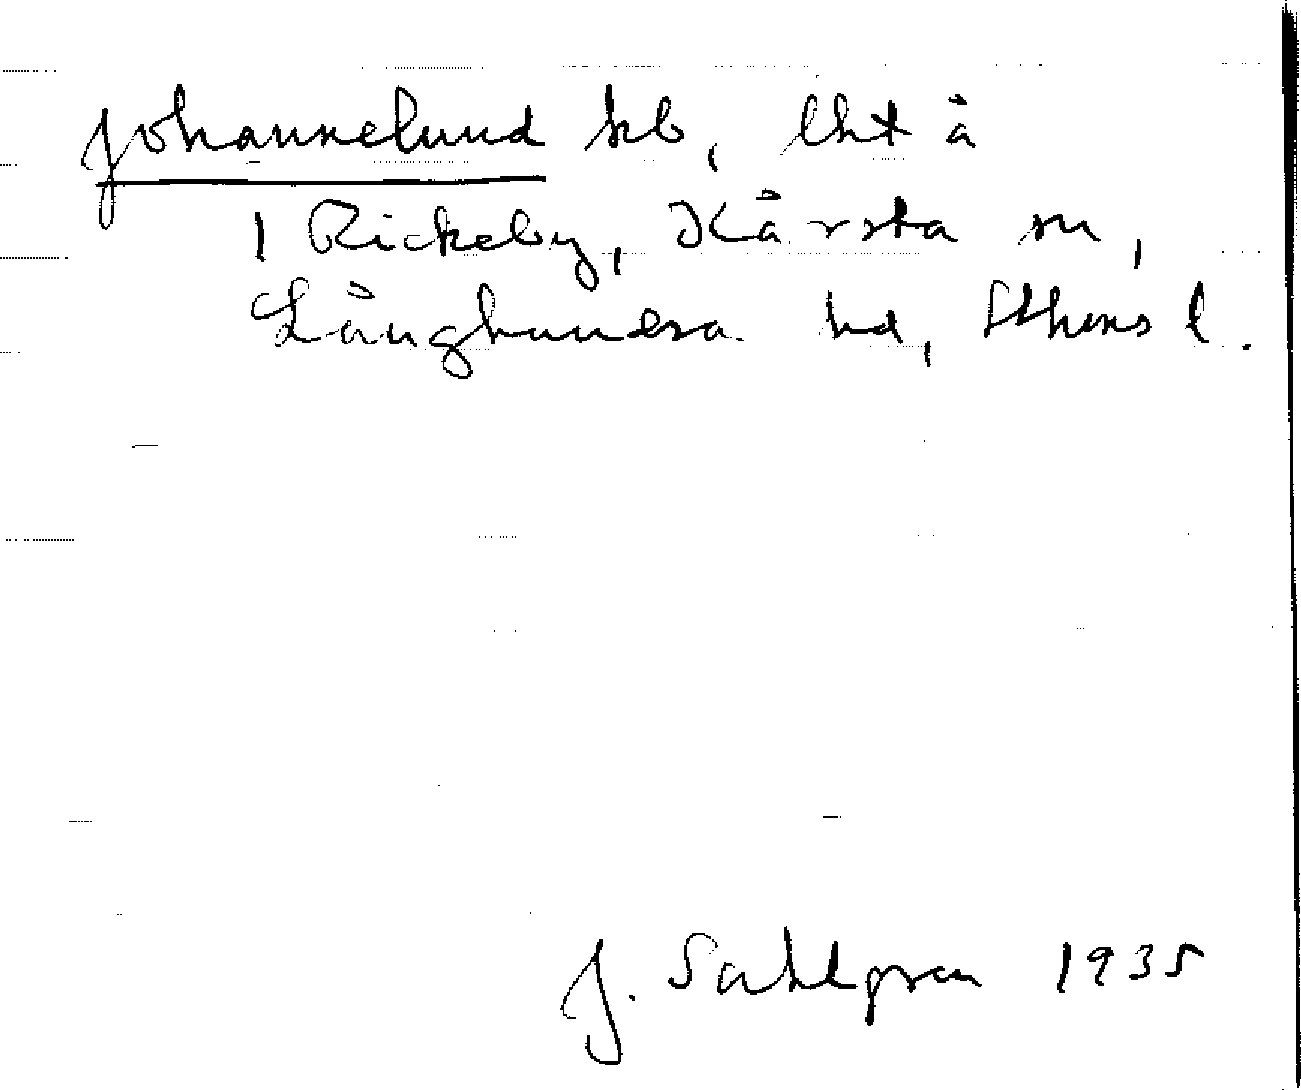 Johannelund hb, lht å
1 Rickeby, Kårsta sn,
Långhundra hd, Sthms l.
J. Sahlgren 1935